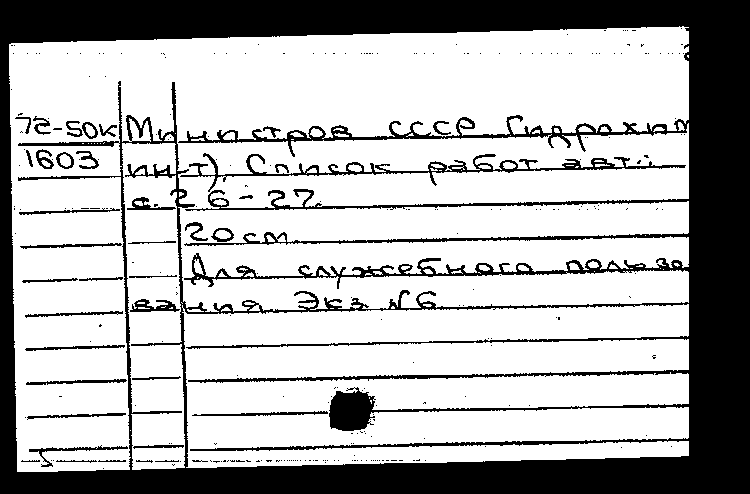 72-50к Министров СССР Гидрохим
1603 ин-т). Список работ авт.:
с. 26-27.
20 см
Для служебного пользо
вания Экз. №6